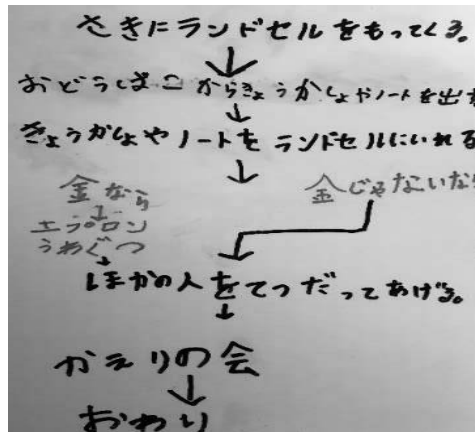 さきにランドセルをもってくる。
おどうぐばこからきょうかしょやノートを出す
きょうかしょやノートをランドセルにいれる
金なら
金じゃないなら
エプロン
うわぐつ
ほかの人をてつだってあげる。
かえりの会
おわり